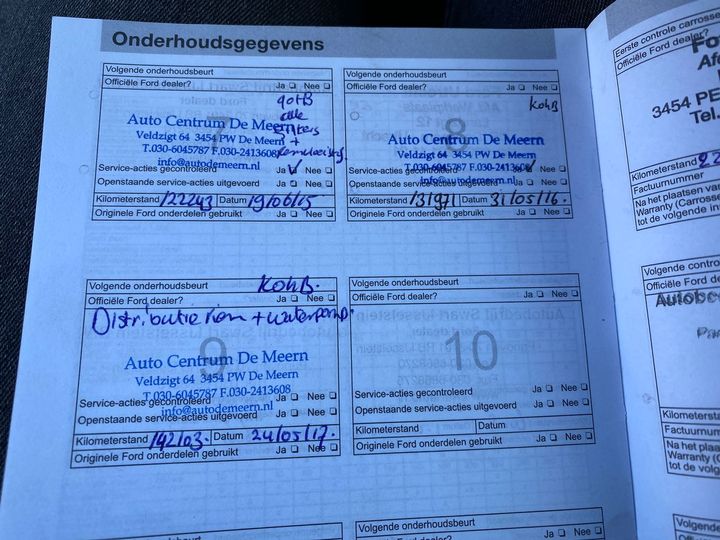 Onderhoudsgegevens
Volgende onderhoudsbeurt
Officiële Ford dealer? Ja Nee
grote
alle
filters
+
7
Auto Centrum De Meern
Veldzigt 64 3454 PW De Meern
T.030-6045787 F.030-2413608
info@autodemeern.nl
Service-acties gecontroleerd Ja Nee
Openstaande service-acties uitgevoerd Ja Nee
Kilometerstand 122243 Datum 19/06/15
Originele Ford onderdelen gebruikt Ja Nee
Volgende onderhoudsbeurt
Officiële Ford dealer? Ja Nee
8
Auto Centrum De Meern
Veldzigt 64 3454 PW De Meern
T.030-6045787 F.030-2413608
info@autodemeern.nl
Service-acties gecontroleerd Ja Nee
Openstaande service-acties uitgevoerd Ja Nee
Kilometerstand 131971 Datum 31/05/16.
Originele Ford onderdelen gebruikt Ja Nee
Volgende onderhoudsbeurt
Officiële Ford dealer? Ja Nee
Distributie riem + waterpomp.
9
Auto Centrum De Meern
Veldzigt 64 3454 PW De Meern
T.030-6045787 F.030-2413608
info@autodemeern.nl
Service-acties gecontroleerd Ja Nee
Openstaande service-acties uitgevoerd Ja Nee
Kilometerstand 142103. Datum 24/05/17.
Originele Ford onderdelen gebruikt Ja Nee
Volgende onderhoudsbeurt
Officiële Ford dealer? Ja Nee
10
Service-acties gecontroleerd Ja Nee
Openstaande service-acties uitgevoerd Ja Nee
Kilometerstand Datum
Originele Ford onderdelen gebruikt Ja Nee
Volgende onderhoudsbeurt
Officiële Ford dealer? Ja Nee
Eerste controle carrosse
Officiële Ford dealer?
3454 PE
Tel.
Kilometerstand 22
Factuurnummer
Na het plaatsen van
Warranty (Carrosse
tot de volgende in
Volgende contro
Officiële Ford de
Autobe
Kilometerst
Factuurnum
Na het plaa
Warranty
tot de volg
Volgende